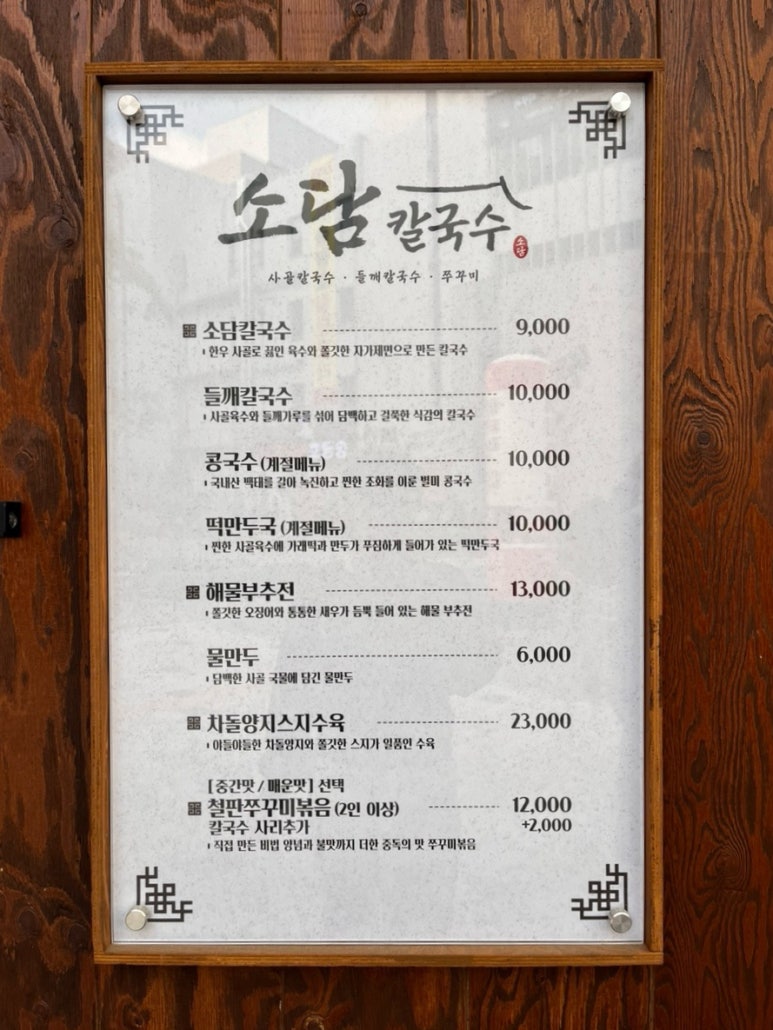 소담 칼국수
소담
사골칼국수 · 들깨칼국수 · 쭈꾸미
소담칼국수 9,000
한우 사골로 끓인 육수와 쫄깃한 자가제면으로 만든 칼국수
들깨칼국수 10,000
사골육수와 들깨가루를 섞어 담백하고 걸쭉한 식감의 칼국수
콩국수 (계절메뉴) 10,000
국내산 백태를 갈아 녹진하고 찐한 조화를 이룬 별미 콩국수
떡만두국 (계절메뉴) 10,000
찐한 사골육수에 가래떡과 만두가 푸짐하게 들어가 있는 떡만두국
해물부추전 13,000
쫄깃한 오징어와 통통한 새우가 듬뿍 들어 있는 해물 부추전
물만두 6,000
담백한 사골 국물에 담긴 물만두
차돌양지스지수육 23,000
야들야들한 차돌양지와 쫄깃한 스지가 일품인 수육
[중간맛 / 매운맛] 선택
철판쭈꾸미볶음 (2인 이상) 12,000
칼국수 사리추가 +2,000
직접 만든 비법 양념과 불맛까지 더한 중독의 맛 쭈꾸미볶음